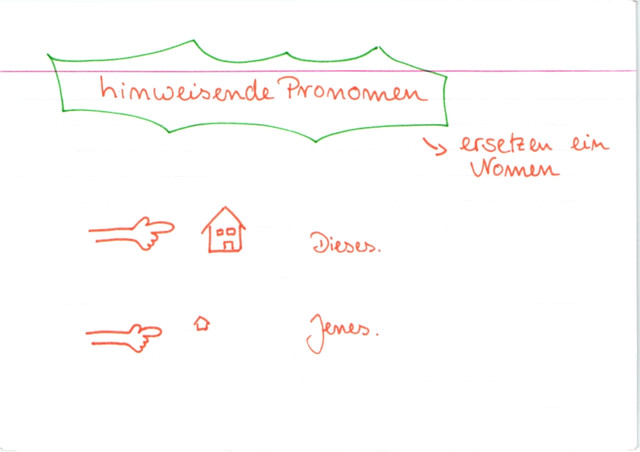 hinweisende Pronomen
ersetzen ein
Nomen
Dieses.
Jenes.